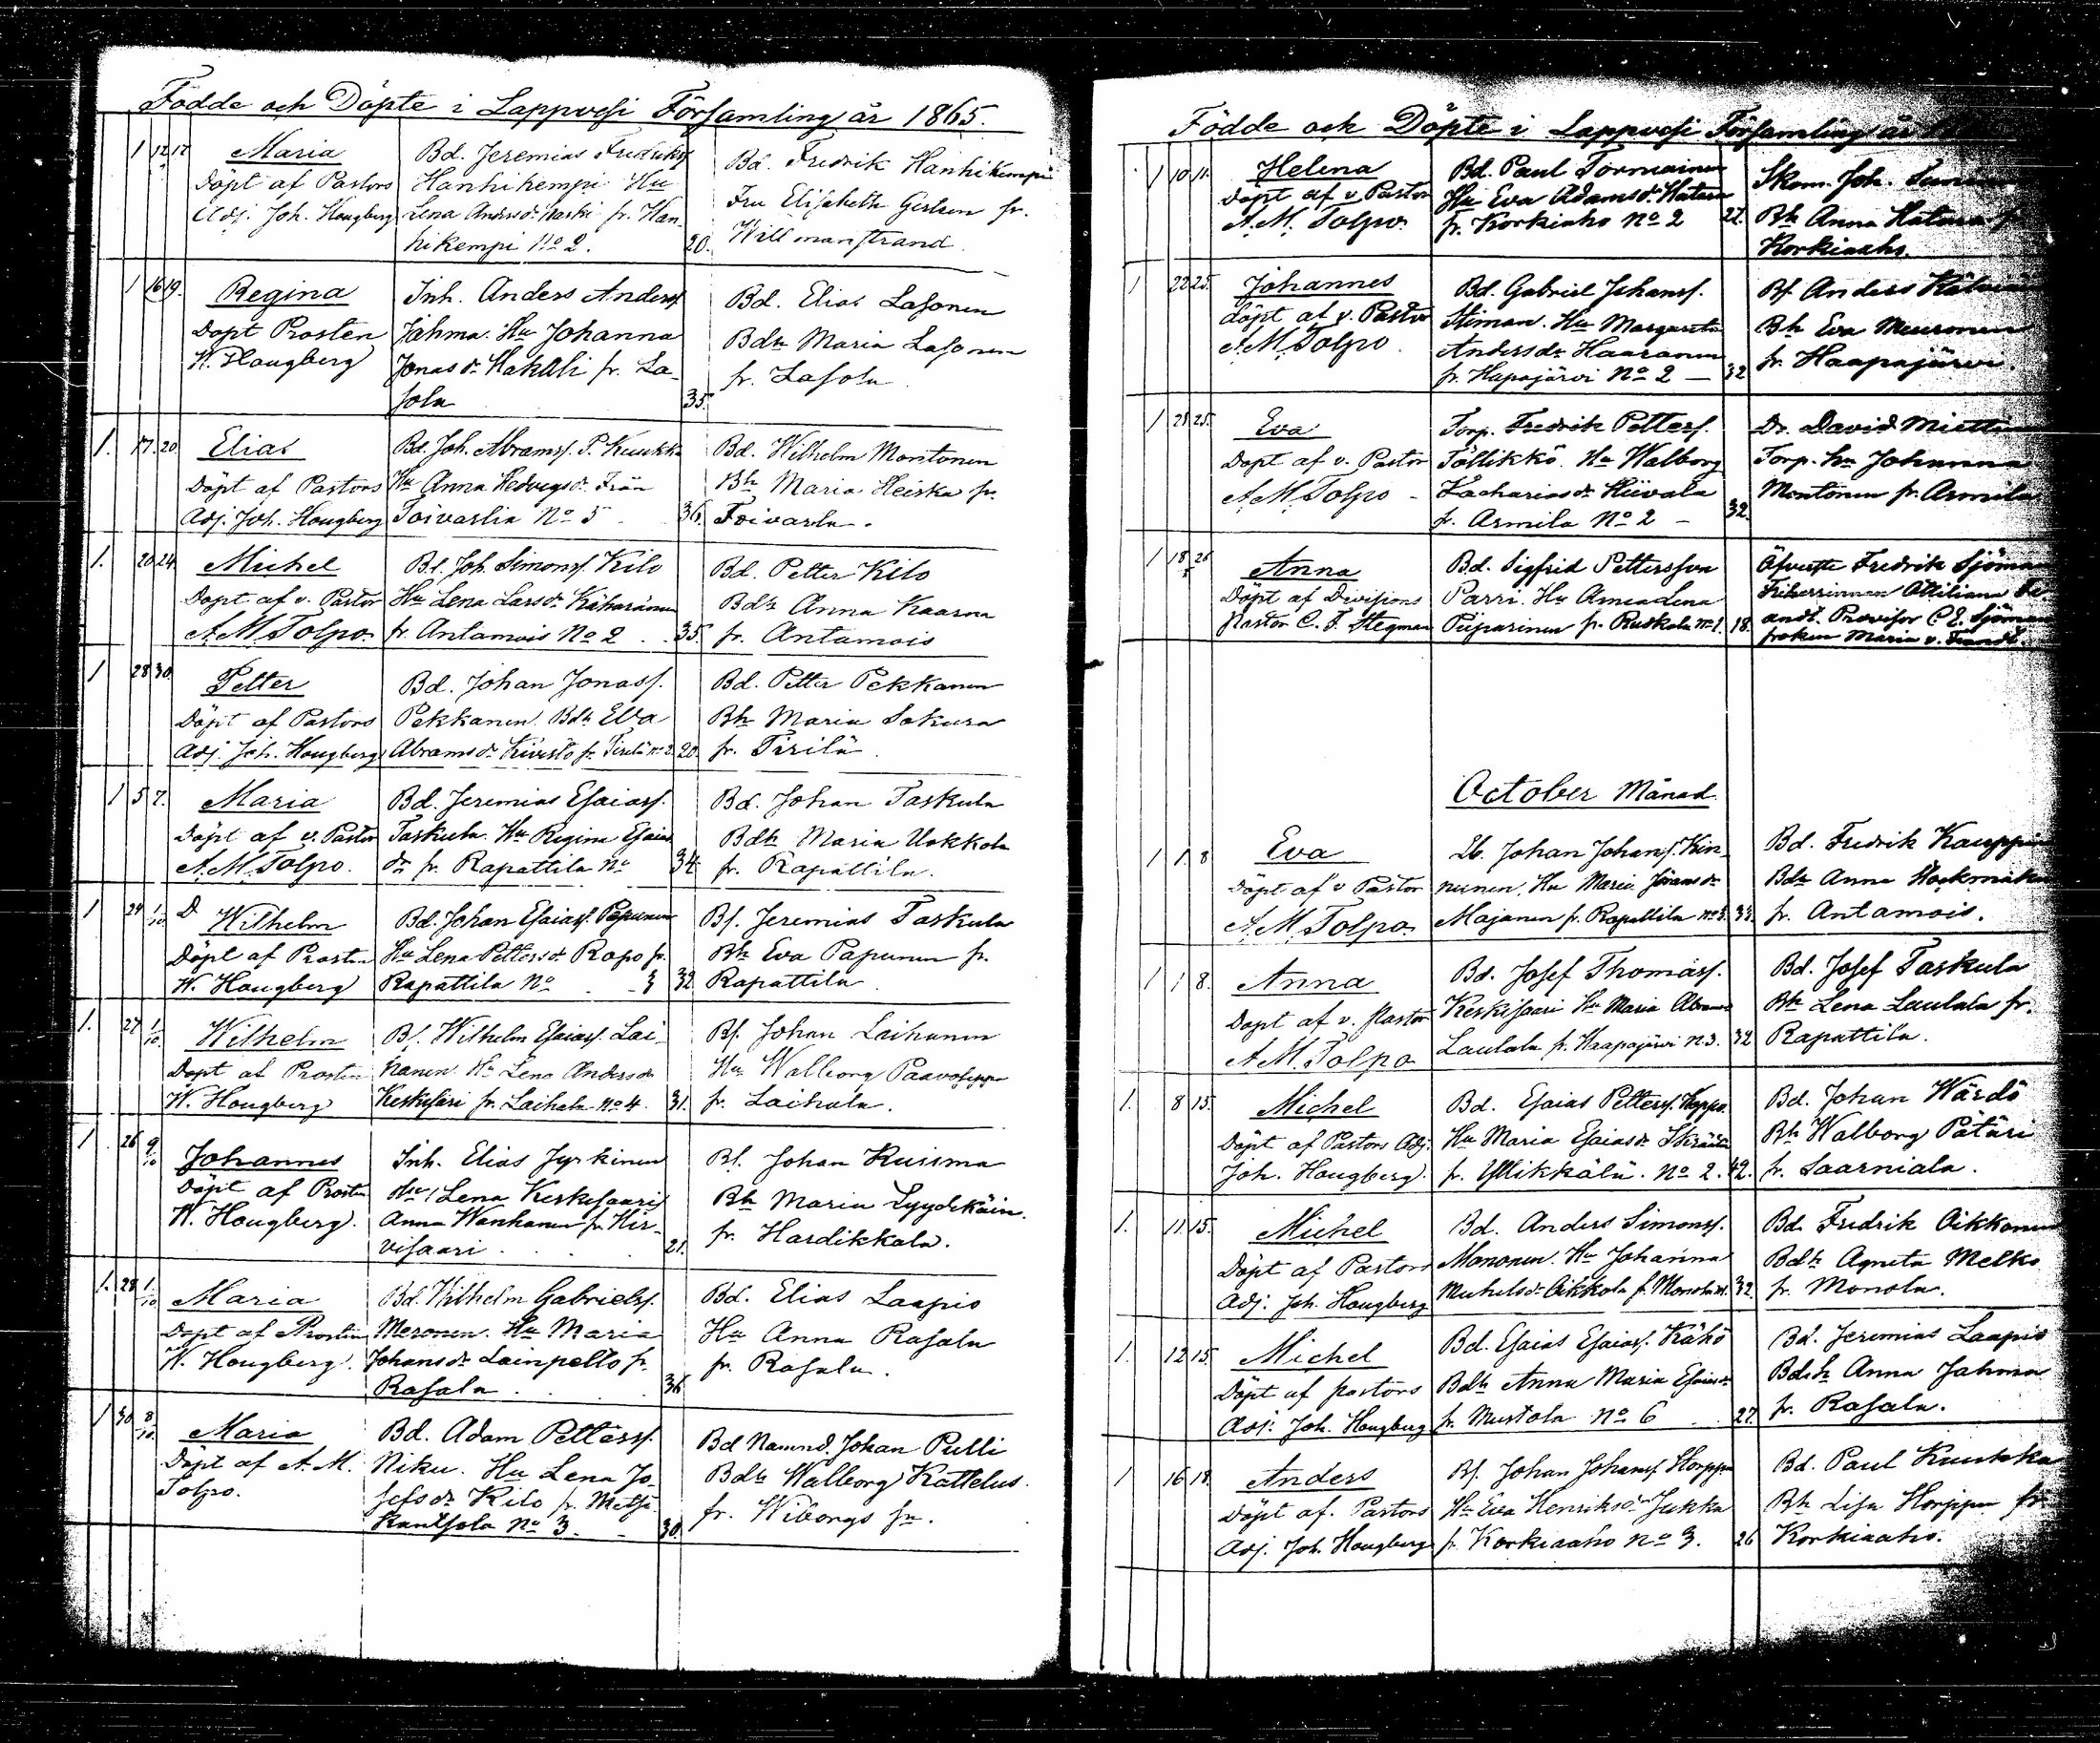 Födde och Döpte i Lappvesi Församling år 1865.
1 12 17 Maria
Döpt af Pastors
Adj. Joh. Hougberg
Bd. Jeremias Fredrikss.
Hanhikempi Hu
Lena Andersdr Karhi fr. Han-
hikempi No 2. 20.
Bd. Fredrik Hanhikempi
Fru Elisabeth Gerlsen fr.
Willmanstrand.
1 16 19. Regina
Döpt Prosten
W. Hougberg
Inh. Anders Anderss.
Jähma. Hu Johanna
Jonasdr Hakali fr. La-
sola 35.
Bd. Elias Lasonen
Bdhu Maria Lasonen
fr. Lasola
1. 17. 20. Elias
Döpt af Pastors
Adj. Joh. Hougberg
Bd. Joh. Abramss. P. Kuukka
Hu Anna Hedvigsdr. Från
Toivarila No 5 36.
Bd. Wilhelm Montonen
Bh Maria Heiska fr.
Toivarla.
1. 20 24. Michel
Döpt af v. Pastor
A. M. Tolpo.
Bd. Joh. Simonss. Kilo
Hu Lena Larsdr Käharänen
fr. Antamois No 2 35.
Bd. Petter Kilo
Bdh Anna Kaarna
fr. Antamois
1 28 30. Petter
Döpt af Pastors
Adj. Joh. Hougberg
Bd. Johan Jonass.
Pekkanen. Bdh Eva
Abramsdr Kivistö fr. Tirilä No 2. 20.
Bd. Petter Pekkanen
Bh Maria Sakura
fr. Tirilä.
1 5 7. Maria
Döpt af v. Pastor
A. M. Tolpo.
Bd. Jeremias Esaiass.
Taskula. Hu Regina Esaias
dr fr. Rapattila No 34.
Bd. Johan Taskula
Bdh Maria Uokkola
fr. Rapattila.
1 24 1/10 D Wilhelm
Döpt af Prosten
W. Hougberg
Bd. Johan Esaiass. Papunen
Hu Lena Pettersdr Rapo fr.
Rapattila No 3 32.
Bs. Jeremias Taskula
Bh Eva Papunen fr.
Rapattila.
1. 27 1/10 Wilhelm
Döpt af Prosten
W. Hougberg
Bs. Wilhelm Esaiass. Lai-
hanen. Hu Lena Andersdr
Keskisari fr. Laihala No 4. 31.
Bs. Johan Laihanen
Hu Walborg Paavoseppa
fr. Laihala.
1 26 9/10 Johannes
Döpt af Prosten
W. Hougberg.
Inh. Elias Jyrkinen
Hu Lena Keskisaari
Anna Wanhanen fr. Hir-
visaari. 21.
Bs. Johan Kuisma
Bh Maria Lyydikäin.
fr. Hardikkala.
1. 28 1/10 Maria
Döpt af Prosten
W. Hougberg.
Bd. Wilhelm Gabrielss.
Meronen. Hu Maria
Johansdr Lainpelto fr.
Rasala. 36
Bd. Elias Laapio
Hu Anna Rasala
fr. Rasala.
1 30 8/10 Maria
Döpt af A. M.
Tolpo.
Bd. Adam Petterss.
Niku. Hu Lena Jo-
sefsdr Kilo fr. Metsä-
kantsola No 3. 30.
Bd Namnd. Johan Pulli
Bdh Walborg Kattelus.
fr. Wiborgs sn.
Födde och Döpte i Lappvesi Församling år
1 10 11. Helena
Döpt af v. Pastor
A. M. Tolpo.
Bd. Paul Tormainen
Hu Eva Adamsdr Hatara
fr. Korkiaho No 2 22.
Skom. Joh.
Bh Anna Hatara fr
Korkiaaho.
1 22 25. Johannes
döpt af v. Pastor
A. M. Tolpo.
Bd. Gabriel Johanss.
Stiman. Hu Margareta
Andersdr Haaranen
fr. Hapajärvi No 2 — 32
Bs. Anders
Bh Eva Meuronen
fr. Haapajärvi.
1 21 25. Eva
Döpt af v. Pastor
A. M. Tolpo -
Torp. Fredrik Petterss.
Töllikkö. Hu Walborg
Zachariasdr Hiivala
fr. Armila No 2 - 32.
Dr. David Mietti
Torp. hu Johanna
Montonen fr. Armila
1 18 26 Anna
Döpt af Divisions
Pastor C. F. Stegman
Bd. Sigfrid Pettersson
Parri. Hu Annalena
Piiparinen fr. Ruskola No 1. 18.
Öfverste Fredrik Sjöman
Friherrinnan Ottiliana
Provisor C. E. Sjöman
fröken Maria v.
October Månad.
1 1 8 Eva
Döpt af v Pastor
A. M. Tolpo.
Lb. Johan Johanss. Kin-
nunen. Hu Maria Jöransdr
Majanen fr. Rapattila No 5. 33.
Bd. Fredrik Kauppi
Bdh Anna
fr. Antamois.
1 1 8. Anna
Döpt af v. Pastor
A. M. Tolpo
Bd. Josef Thomass.
Keskisaari Hu Maria Abrams
Laulala fr. Haapajärvi N 3. 32
Bd. Josef Taskula
Bh Lena Laulala fr.
Rapattila.
1. 8 15. Michel
Döpt af Pastors Adj.
Joh. Hougberg.
Bd. Esaias Petterss. Heppo.
Hu Maria Esaiasdr
fr. Yllikkälä. No 2. 42.
Bd. Johan Wärdö
Bh Walborg Pätäri
fr. Saarniala.
1. 11. 15. Michel
Döpt af Pastors
Adj. Joh. Hougberg
Bd. Anders Simonss.
Mononen. Hu Johanna
Michelsdr Oikkola fr. Monola 32.
Bd. Fredrik Oikkonen
Bdh Agneta Melko
fr. Monola.
1. 12 15 Michel
Döpt af pastors
Adj. Joh. Hougberg
Bd. Esaias Esaiass. Krähö
Bdh Anna Maria Esaiasdr
fr. Mustola No 6 27.
Bd. Jeremias Laapio
Bdh Anna Jähma
fr. Rasala.
1 16 18. Anders
Döpt af. Pastors
Adj. Joh. Hougberg
Bs. Johan Johanss. Horppu
Hu Eva Henriksdr Jukka
fr. Korkiaaho No 3. 26
Bd. Paul Kuukka
Bh Lisa Horppu fr
Korkiaaho.